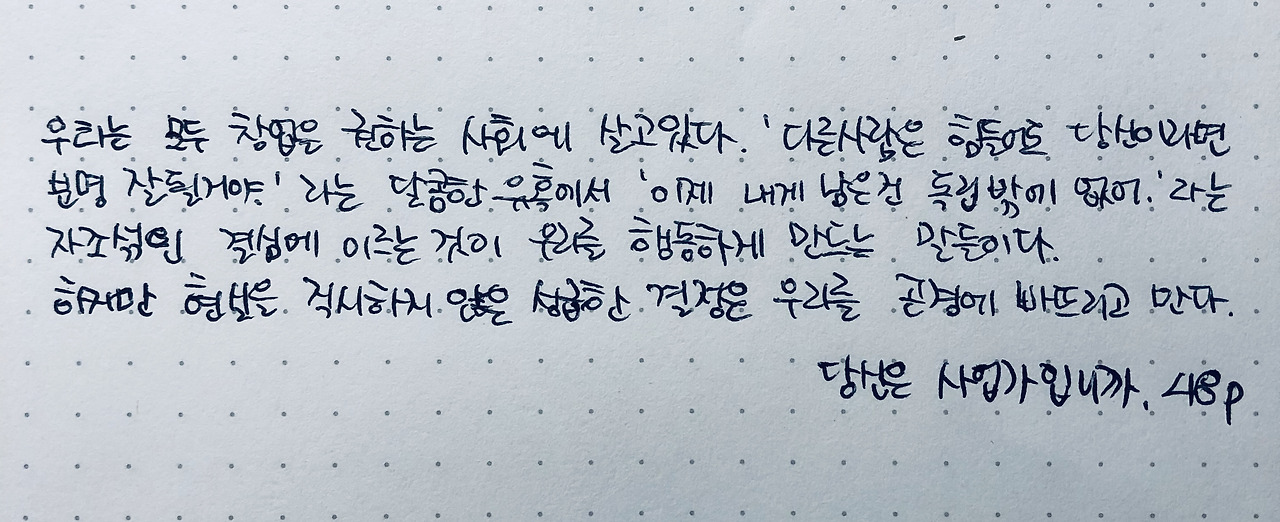 우리는 모두 창업을 권하는 사회에 살고있다. '다른사람은 힘들어도 당신이라면
분명 잘될거야.' 라는 달콤한 유혹에서 '이제 내게 남은건 독립밖에 없어.'라는
자조섞인 결심에 이르는 것이 우리를 행동하게 만드는 말들이다.
하지만 현실을 직시하지 않은 성급한 결정은 우리를 곤경에 빠뜨리고 만다.
당신은 사업가입니까. 48p